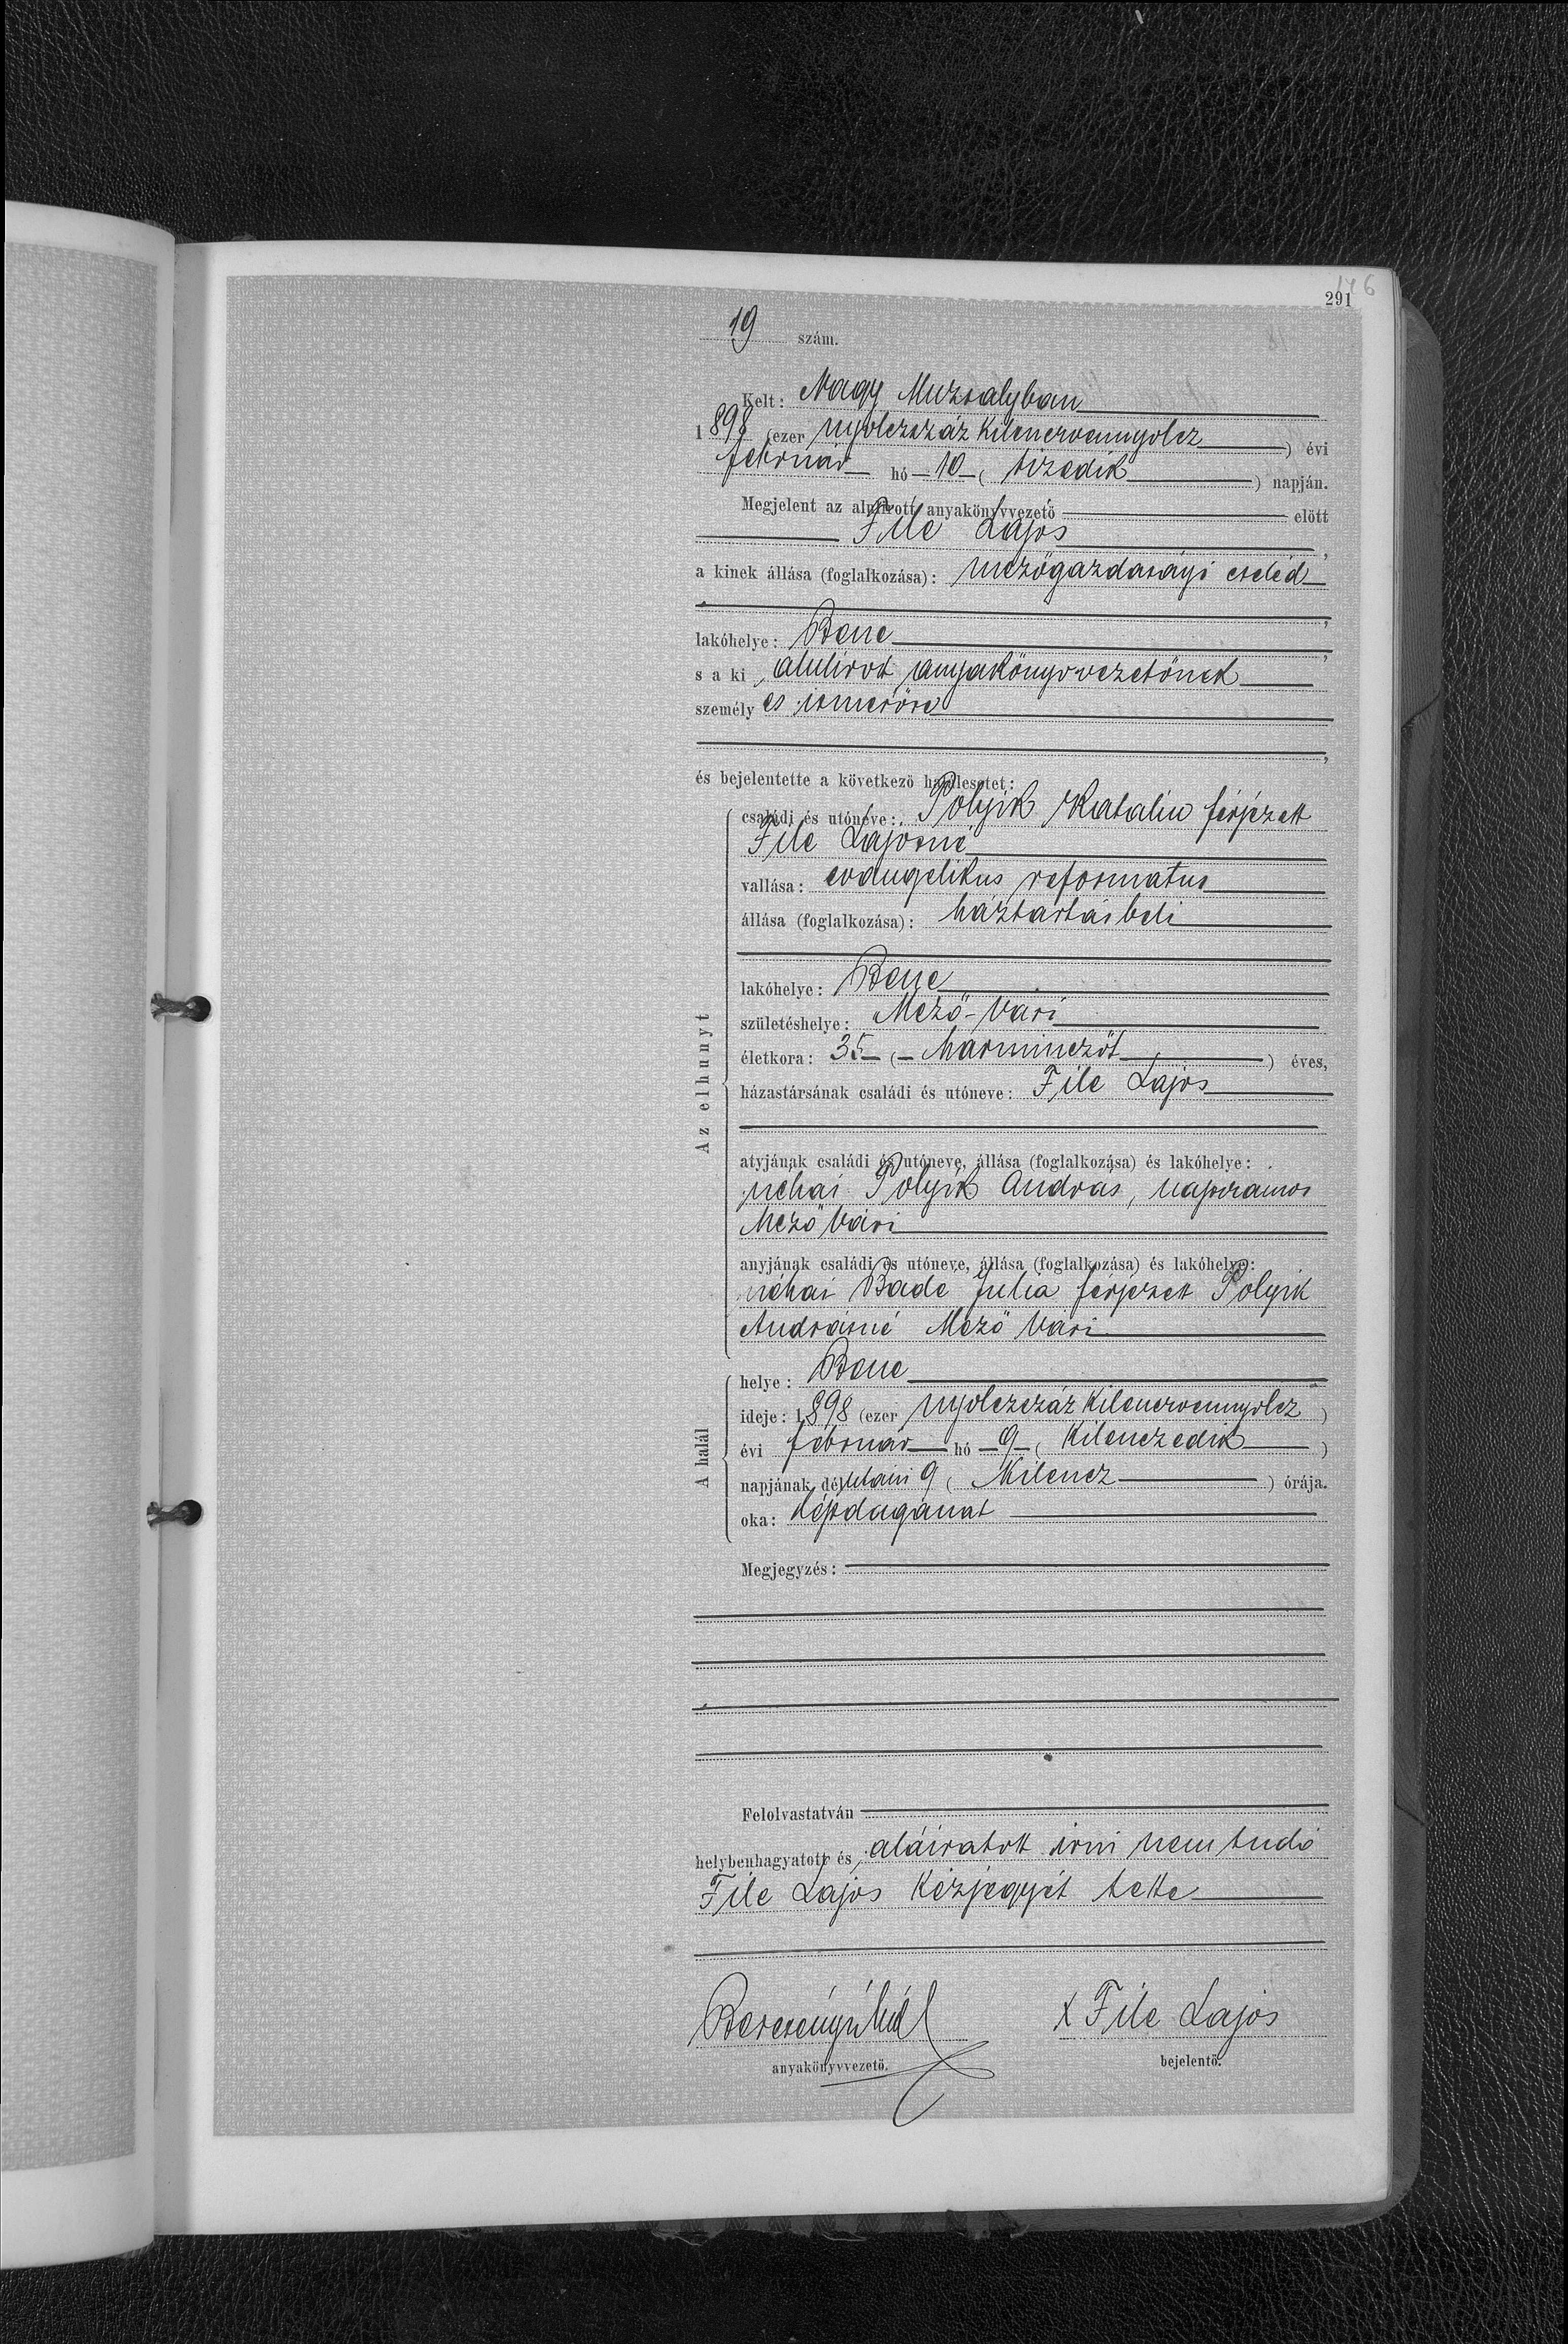 146
291
19 szám.
Kelt: Nagy Muzsalyban
1898 (ezer nyolczszáz kilenczvennyolcz) évi
február hó 10 (tizedik) napján.
Megjelent az alulirott anyakönyvvezető előtt
File Lajos,
a kinek állása (foglalkozása): mezőgazdasági cseléd
,
lakóhelye: Bene,
s a ki alulirott anyakönyvvezetőnek
személyes ismerőse
,
és bejelentette a következő halálesetet:
Az elhunyt
családi és utóneve: Polyik Katalin férjezett
File Lajosné
vallása: evangelikus reformatus
állása (foglalkozása): háztartásbeli
lakóhelye: Bene
születéshelye: Mező-Vári
életkora: 35 (harminczöt) éves,
házastársának családi és utóneve: File Lajos
atyjának családi és utóneve, állása (foglalkozása) és lakóhelye:
néhai Polyik András, napszamos
Mező Vári
anyjának családi és utóneve, állása (foglalkozása) és lakóhelye:
néhai Badé Julia férjezett Polyik
Andrásné Mező Vári
A halál
helye: Bene
ideje: 1898 (ezer nyolczszáz kilenczvennyolcz)
évi február hó 9 (kilenczedik)
napjának délutáni 9 (kilencz) órája.
oka: lépdaganat
Megjegyzés:
Felolvastatván
helybenhagyatott és aláiratott irni nem tudó
File Lajos kézjegyét tette
anyakönyvvezető.
x File Lajos
bejelentő.